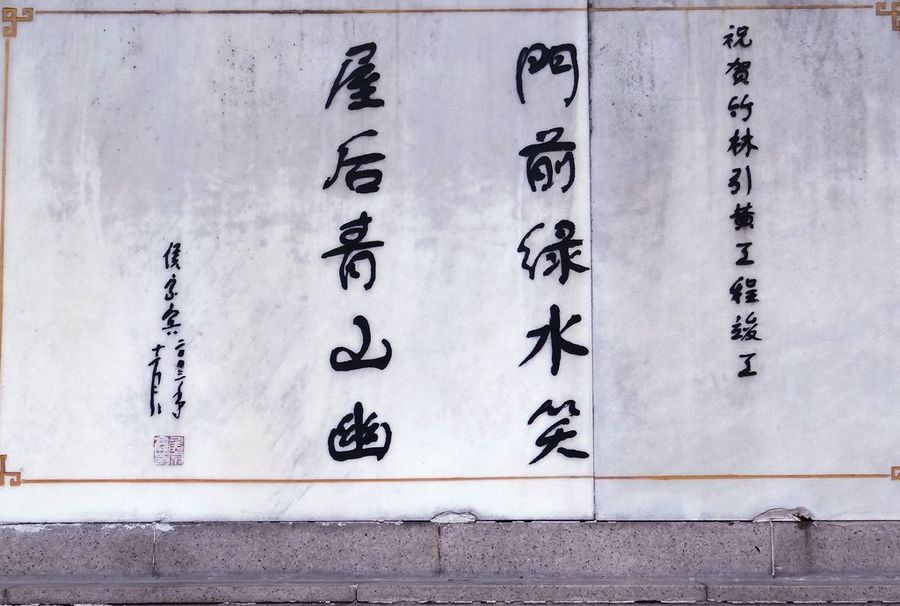 祝贺竹林引黄工程竣工
門前绿水笑
屋后青山幽
侯宗宾
二〇〇三年